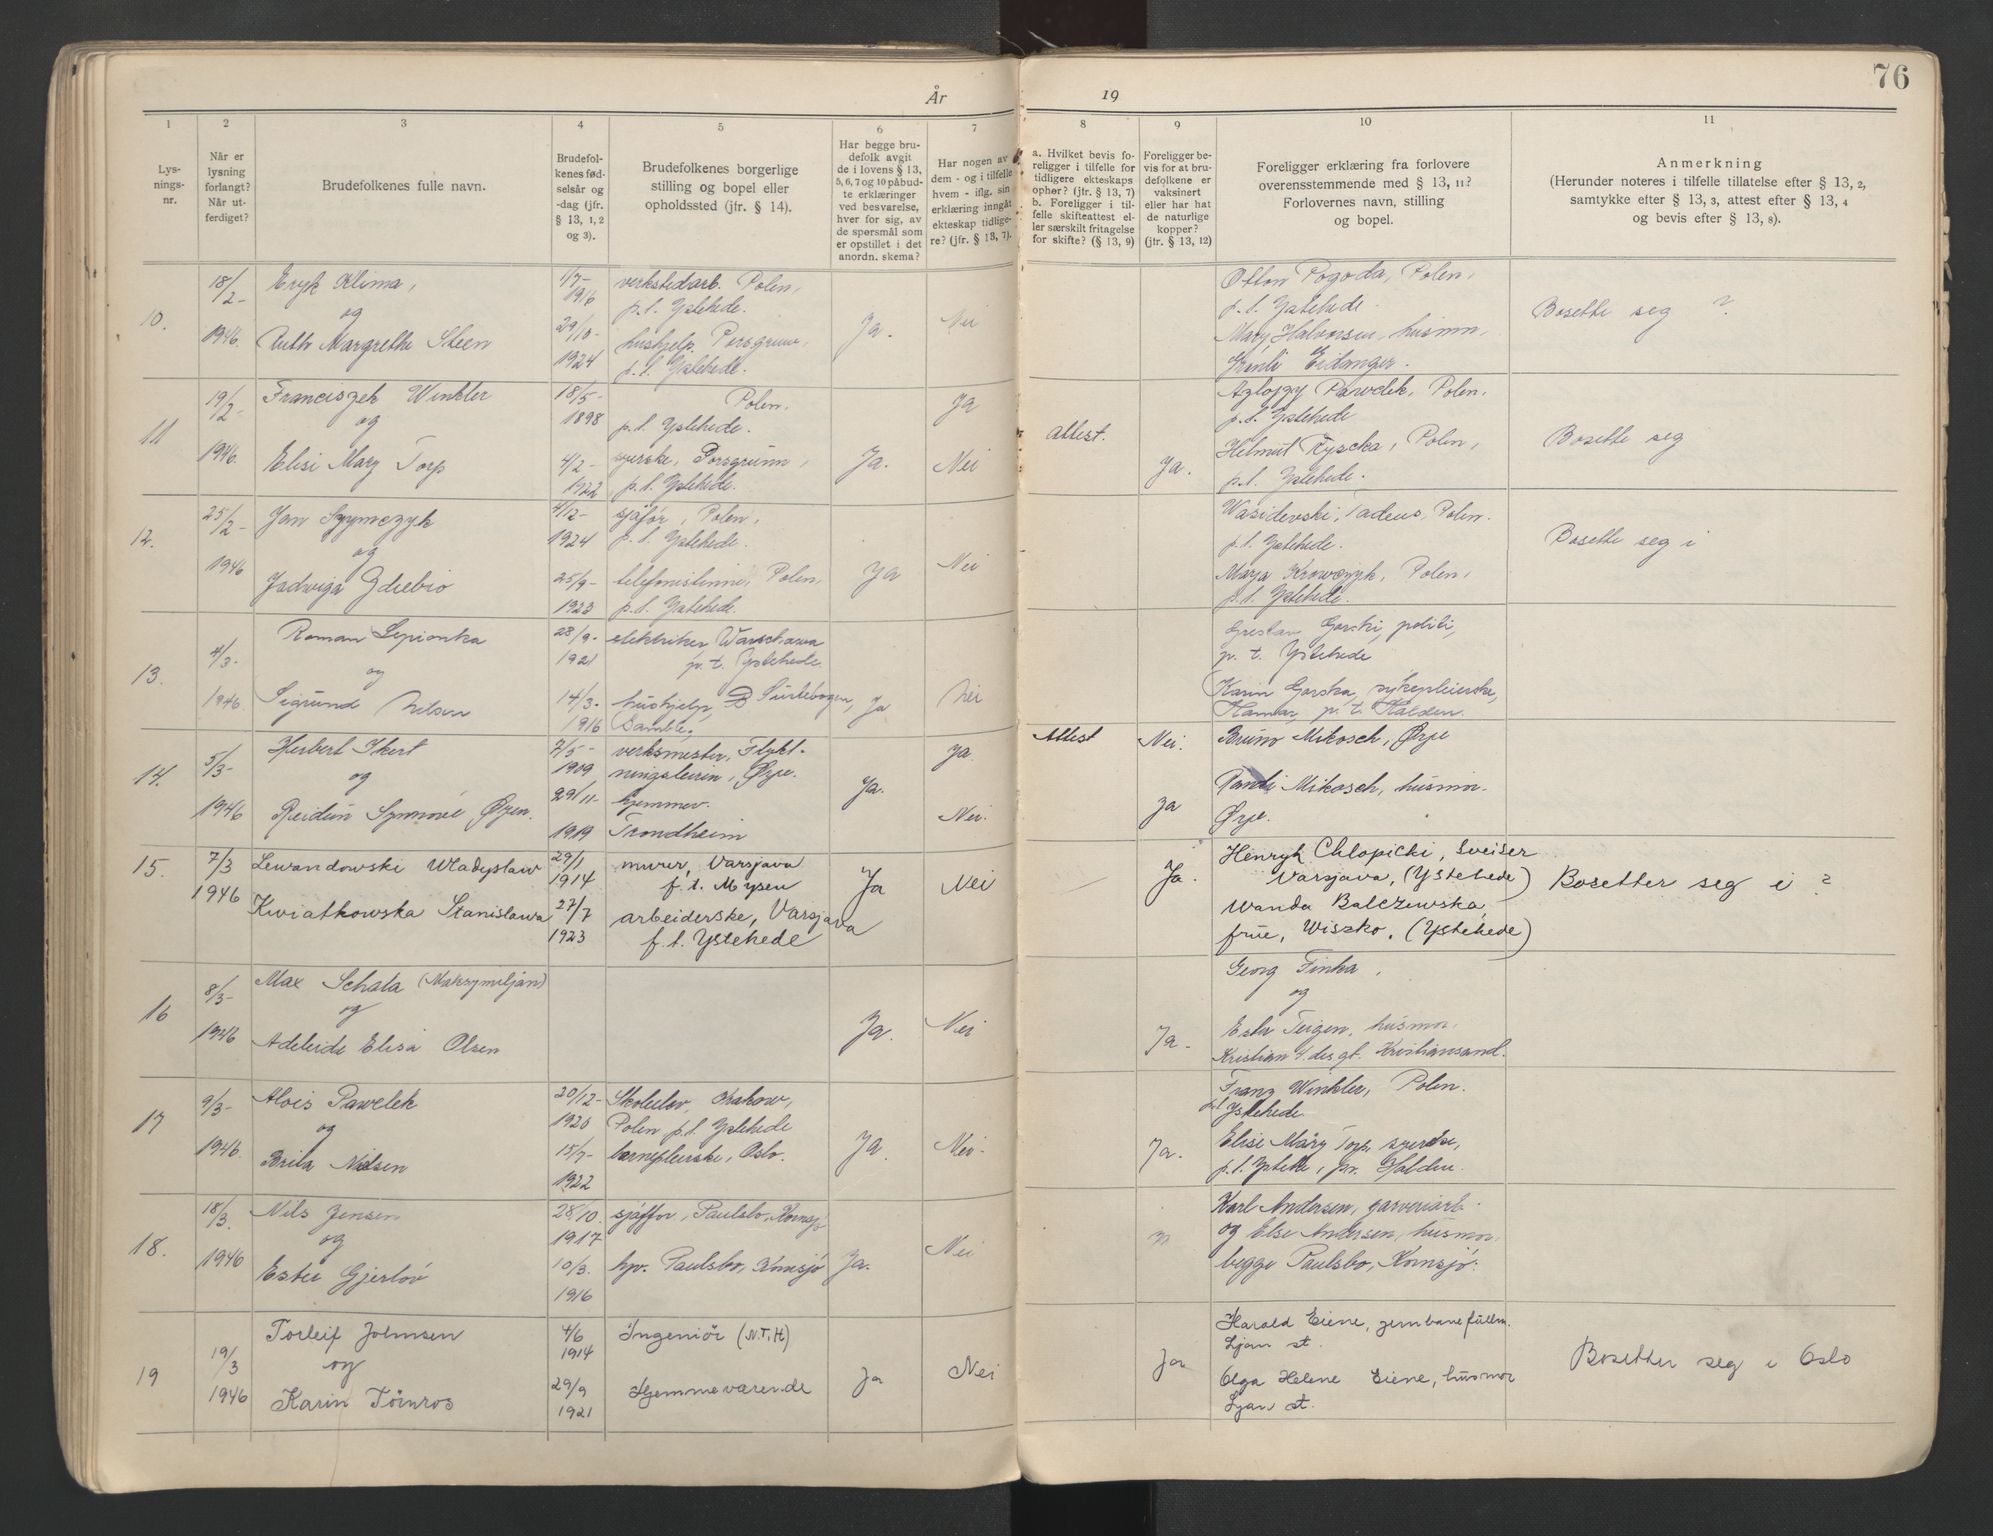 76
År
19
1
2
3
4
5
6
7
8
9
10
11
Lys-
nings-
nr.
Når er
lysning
forlangt?
Når ut-
ferdiget?
Brudefolkenes fulle navn.
Brudefol-
kenes fød-
selsår og
-dag (jfr.
§ 13, 1, 2
og 3).
Brudefolkenes borgerlige
stilling og bopel eller
opholdssted (jfr. § 14).
Har begge bru-
defolk avgit
de i lovens § 13,
5, 6, 7 og 10 påbud-
te erklæringer
ved besvarelse,
hver for sig, av
de spørsmål som
er opstillet i det
anordn. skema?
Har nogen av
dem - og i tilfelle
hvem - iflg. sin
erklæring inngått
ekteskap tidlige-
re? (jfr. § 13, 7).
a. Hvilket bevis fo-
religger i tilfelle for
tidligere ekteskaps
ophør? (jfr. § 13, 7)
b. Foreligger i til-
felle skifteattest el-
ler særskilt fritagelse
for skifte? (§ 13, 9)
Foreligger be-
vis for at bru-
defolkene er
vaksinert
eller har hat
de naturlige
kopper?
(jfr. § 13, 12)
Foreligger erklæring fra forlovere
overensstemmende med § 13, 11?
Forlovernes navn, stilling
og bopel.
Anmerkning
(Herunder noteres i tilfelle tillatelse efter § 13, 2,
samtykke efter § 13, 3, attest efter § 13, 4
og bevis efter § 13, 8).
10.
18/2-
1946.
Eryk Klima,
og
Ruth Margrethe Steen
1/7-
1916
29/10-
1924
verkstedarb. Polen,
p.t. Ystehede.
hushjelp, Porsgrunn,
p.t. Ystehede.
Ja.
Nei
Otton Pogoda, Polen,
p.t. Ystehede.
Mary Halvorsen, husmor,
Eidanger.
Bosette seg ?
11
19/2-
1946.
Franciszek Winkler
og
Elisi Mary Torp
18/5-
1898
4/2-
1922
Polen.
p.t. Ystehede.
syerske, Porsgrunn,
p.t. Ystehede.
Ja.
Ja
Nei
Attest.
Ja.
Pawelek, Polen.
p.t. Ystehede
Helmut Ryscka, Polen,
p.t. Ystehede.
Bosette seg
12.
25/2-
1946
Jan Szymczyk
og
Jadwiga Gdiebio
4/12-
1924
25/9-
1923
sjåfør, Polen,
p.t. Ystehede.
telefonistinne, Polen,
p.t. Ystehede.
Ja
Nei
Wasidevski, Tadeus, Polen.
p.t. Ystehede.
Marja Krowczyk, Polen,
p.t. Ystehede.
Bosette seg i
13.
4/3-
1946.
Roman Lepionka
og
Sigrund Nilsen
28/9-
1921
14/3-
1916
elektriker Warschawa
p.t. Ystehede
hushjelp, Surtebogen,
Bamble,
Ja
Nei
Gorski, politi,
p.t. Ystehede
Karin Gorska, sykepleierske,
Hamar, p.t. Halden.
14.
5/3-
1946
Herbert Ikert
og
Reidun Synnøve Øyen.
7/5-
1909
29/11-
1919
verksmester, Flykt-
ningsleirin, Ørje.
hjemmev.
Trondheim
Ja.
Ja.
Nei.
Attest
Nei.
Ja
Bruno Mikosch, Ørje
Mikosch, husmor.
Ørje.
15.
7/3
1946
Lewandowski Władysław
Kwiatkowska Stanisława
29/1
1914
27/7
1923
murer, Varsjava
f.t. Mysen
arbeiderske, Varsjava
f.t. Ystehede
Ja
Nei
Ja.
Henryk Chlopicki, Sveiser
Varsjava, (Ystehede)
Wanda Balczewska,
frue, Wiszko. (Ystehede)
Bosetter seg i ?
16
8/3-
1946
Max Schala (Maksymiljan)
og
Adeleide Elisa Olsen
Ja.
Nei
Ja.
Georg Finka,
og
Ester Teigen, husmor,
Kristian 4. des gt. Kristiansand.
17
9/3-
1946.
Alois Pawelek
og
Brita Nilsen
20/12-
1920
15/7-
1922
Skoleelev, Krakow,
Polen, p.t. Ystehede
barnepleierske, Oslo.
Ja.
Nei.
Ja.
Franz Winkler, Polen.
p.t. Ystehede
Elisi Mary Torp, syerske,
p.t. Ystehe, pr. Halden.
18.
18/3.
1946
Nils Jensen
og
Ester Gjerløv
28/10.
1917
10/3.
1916
sjåffør, Paulsbo, Kornsjø
hjv. Paulsbo, Kornsjø
Ja.
Nei
Karl Andersen, garveriarb.
og Else Andersen, husmor,
begge Paulsbo, Kornsjø.
19
19/3
1946
Torleif Johnsen
og
Karin Tömros
4/6
1914
29/9
1921
Ingeniör (N.T.H)
Hjemmeværende
Ja
Nei
Ja
Harald Eiene, jernbanefullm.
Ljan st.
Olga Helene Eiene, husmor
Ljan st.
Bosetter seg i Oslo